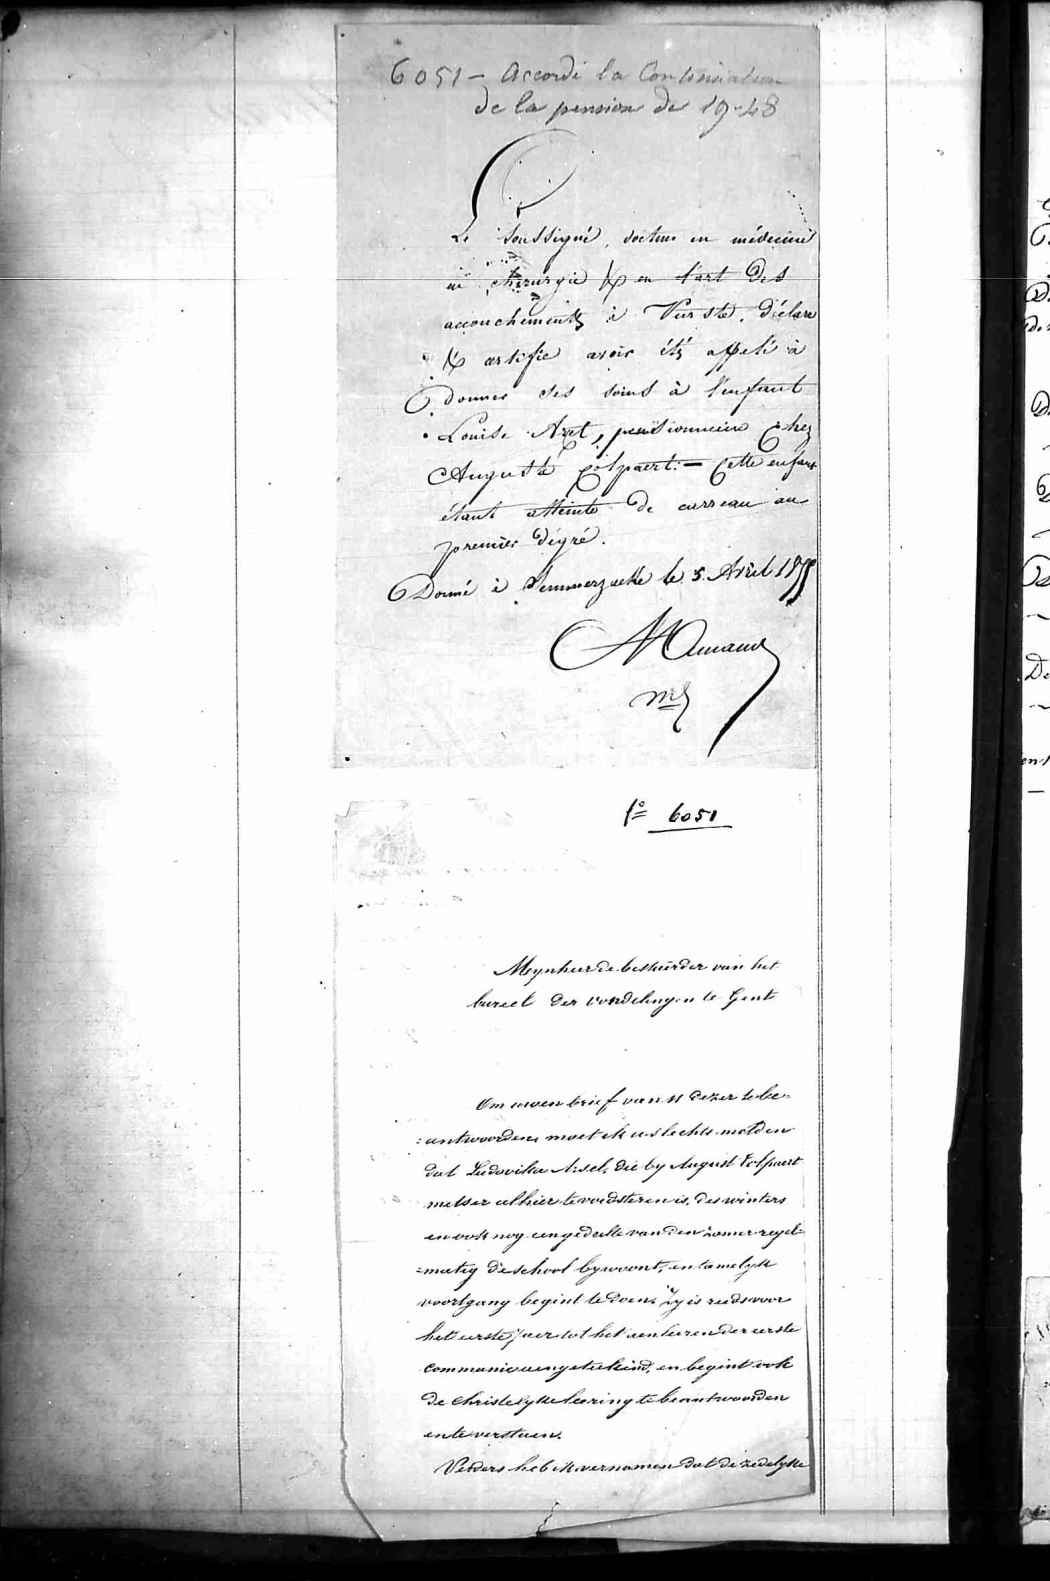 6051 – Accordé la Continuation
de la pension de 19-48
Le soussigné, docteur en médecine
en chirurgie & en l'art des
accouchements à Vurste, déclare
& certifie avoir été appelé à
donner ses soins à l'enfant
Louise Azet, pensionnaire chez
Auguste Colpaert. — Cette enfant
étant atteinte de carreau au
premier dégré.
Donné à Semmerzaeke le 5 Avril
Amand
1º 6051
Meynheer de bestuerder van het
bureel der vondelingen te Gent
Om uwen brief van 11 dezer te be=
=antwoorden, moet ik u slechts melden
dat Ludovika Azel, die by August Colpaert
metser alhier te voedsteren is, des winters
en ook nog een gedeelte van den zomer regel=
=matig de school bywoont, en tamelyk
voortgang begint te doen. Zy is reeds voor
het eerste jaer tot het aenleeren der eerste
communie aengeteekend, en begint ook
de christelyke leering te beantwoorden
en te verstaen.
Verders heb ik vernomen dat de zedelyke